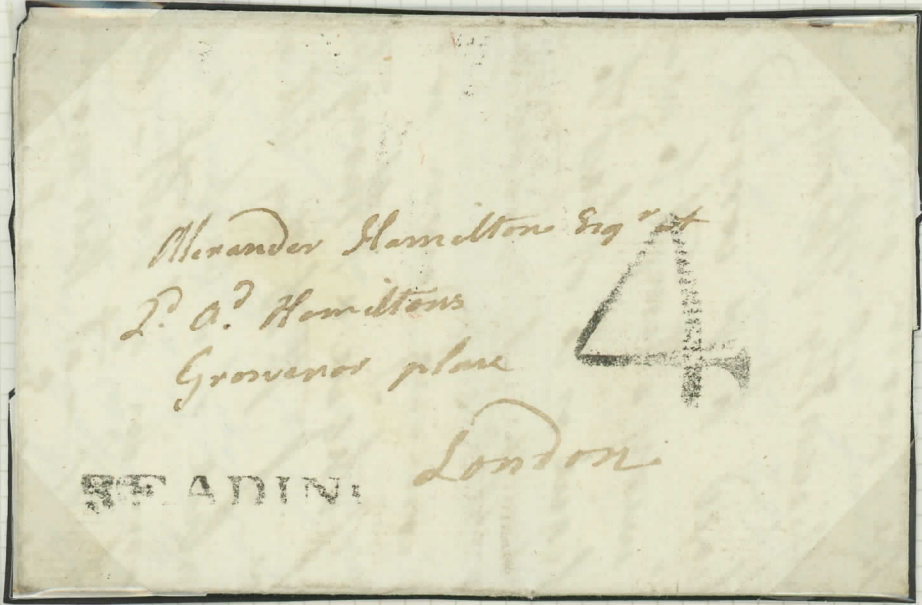 Alexander Hamilton Esqr at
Ld. Ad. Hamiltons
Grosvenor place
London
4
READIN